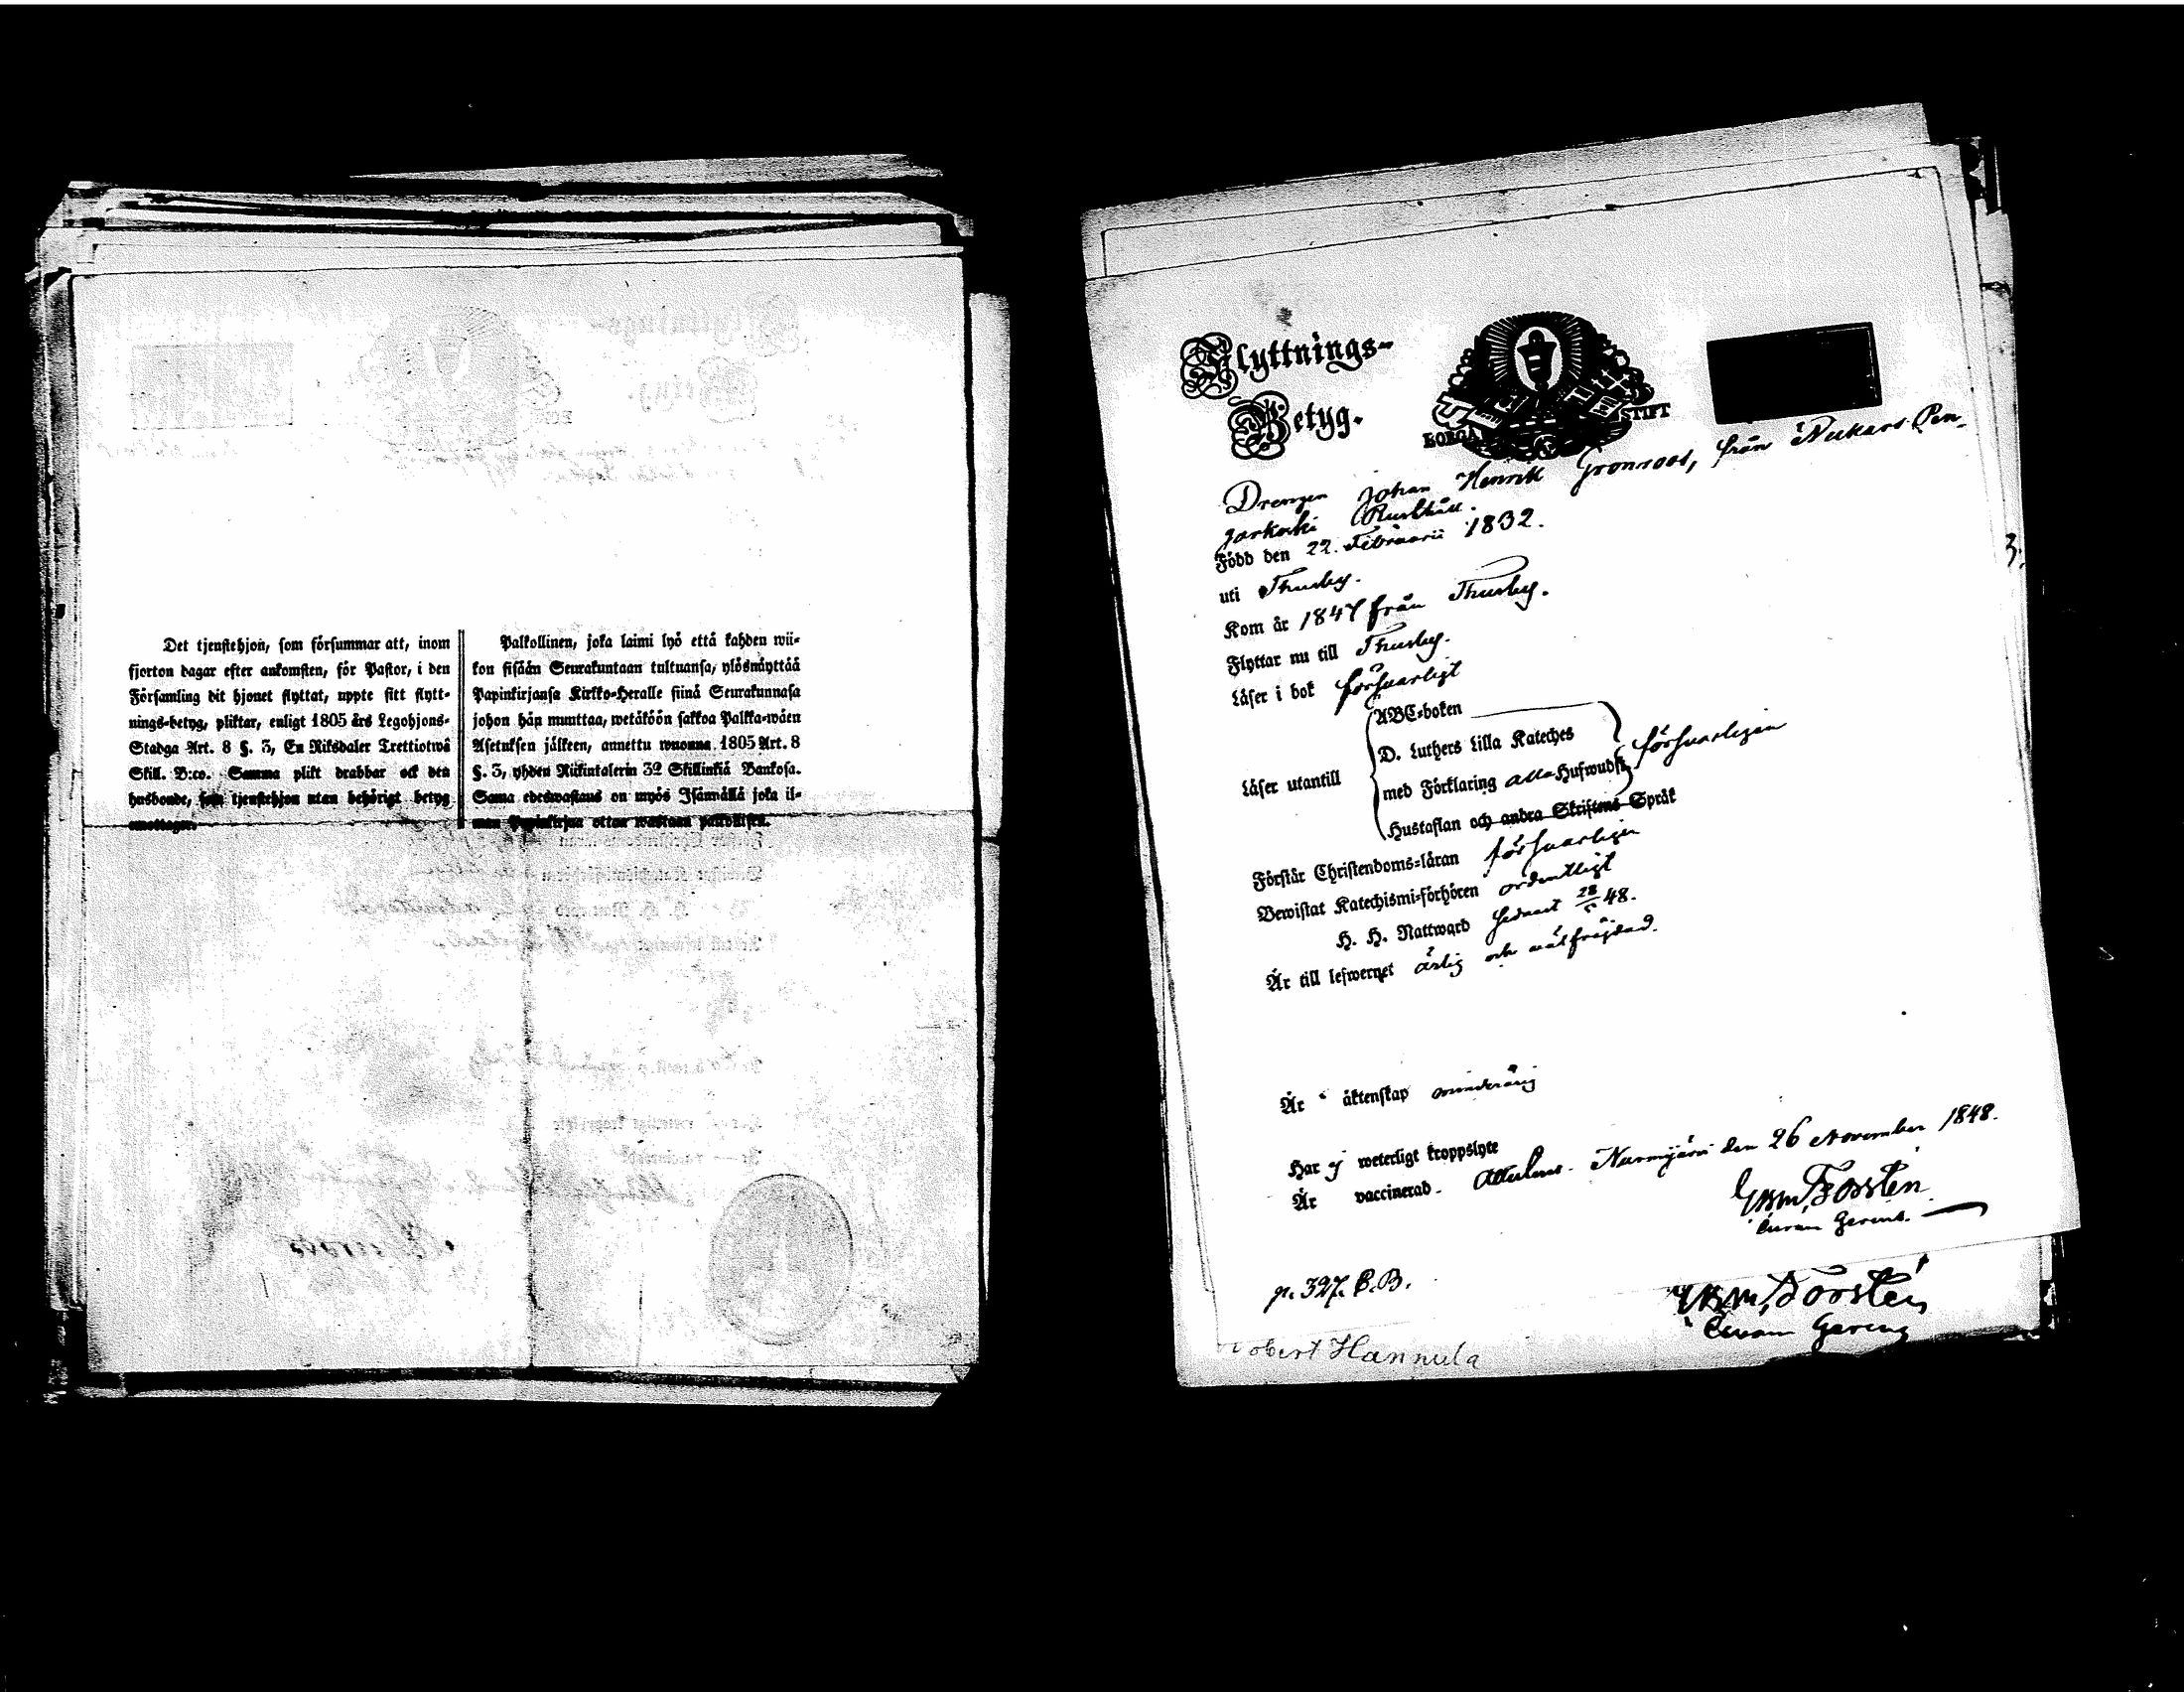 Det tjenstehjon, som försummar att, inom
fjorton dagar efter ankomsten, för Pastor, i den
Församling dit hjonet flyttat, uppte sitt flytt-
nings-betyg, pliktar, enligt 1805 års Legohjons-
Stadga Art. 8 §. 3, En Riksdaler Trettiotwå
Skill. B:co. Samma plikt drabbar ock den
husbonde, som tjenstehjon utan behörigt betyg
emottager.
Palkollinen, joka laimi lyö että kahden wii-
kon sisään Seurakuntaan tultuansa, ylösnäyttää
Papinkirjansa Kirkko-Heralle siinä Seurakunnasa
johon hän muuttaa, wetäköön sakkoa Palkka-wäen
Asetuksen jälkeen, annettu wuonna 1805 Art. 8
§. 3, yhden Riikintalerin 32 Skillinkiä Bankosa.
Sama edeswastaus on myös Isännällä joka il-
man Papinkirjaa ottaa wastaan palkollisen.
Flyttnings-
Betyg.
BORGÅ STIFT
Drengen Johan Henrik Grönroos, från Nukars Pen-
jarkoski Rusthåll.
Född den 22. Februarii 1832.
uti Thusby.
Kom år 1847 från Thusby.
Flyttar nu till Thusby.
Läser i bok försvarligt
Läser utantill
ABC-boken
D. Luthers Lilla Kateches
med Förklaring alla Hufwudst. försvarligen
Hustaflan och andra Skriftens Språk
Förstår Christendoms-läran försvarligen
Bewistat Katechismi-förhören ordentligt
H. H. Nattward sednast 28/5 48.
Är till lefwernet ärlig och välfrejdad.
Är i äktenskap minderårig
Har ej weterligt kroppslyte
Är vaccinerad. Attesteras. Nurmijärvi den 26 November 1848.
Forstén
Curam Gerens.
p. 327. C.B.
Forstén
Curam Gerens
Robert Hannula